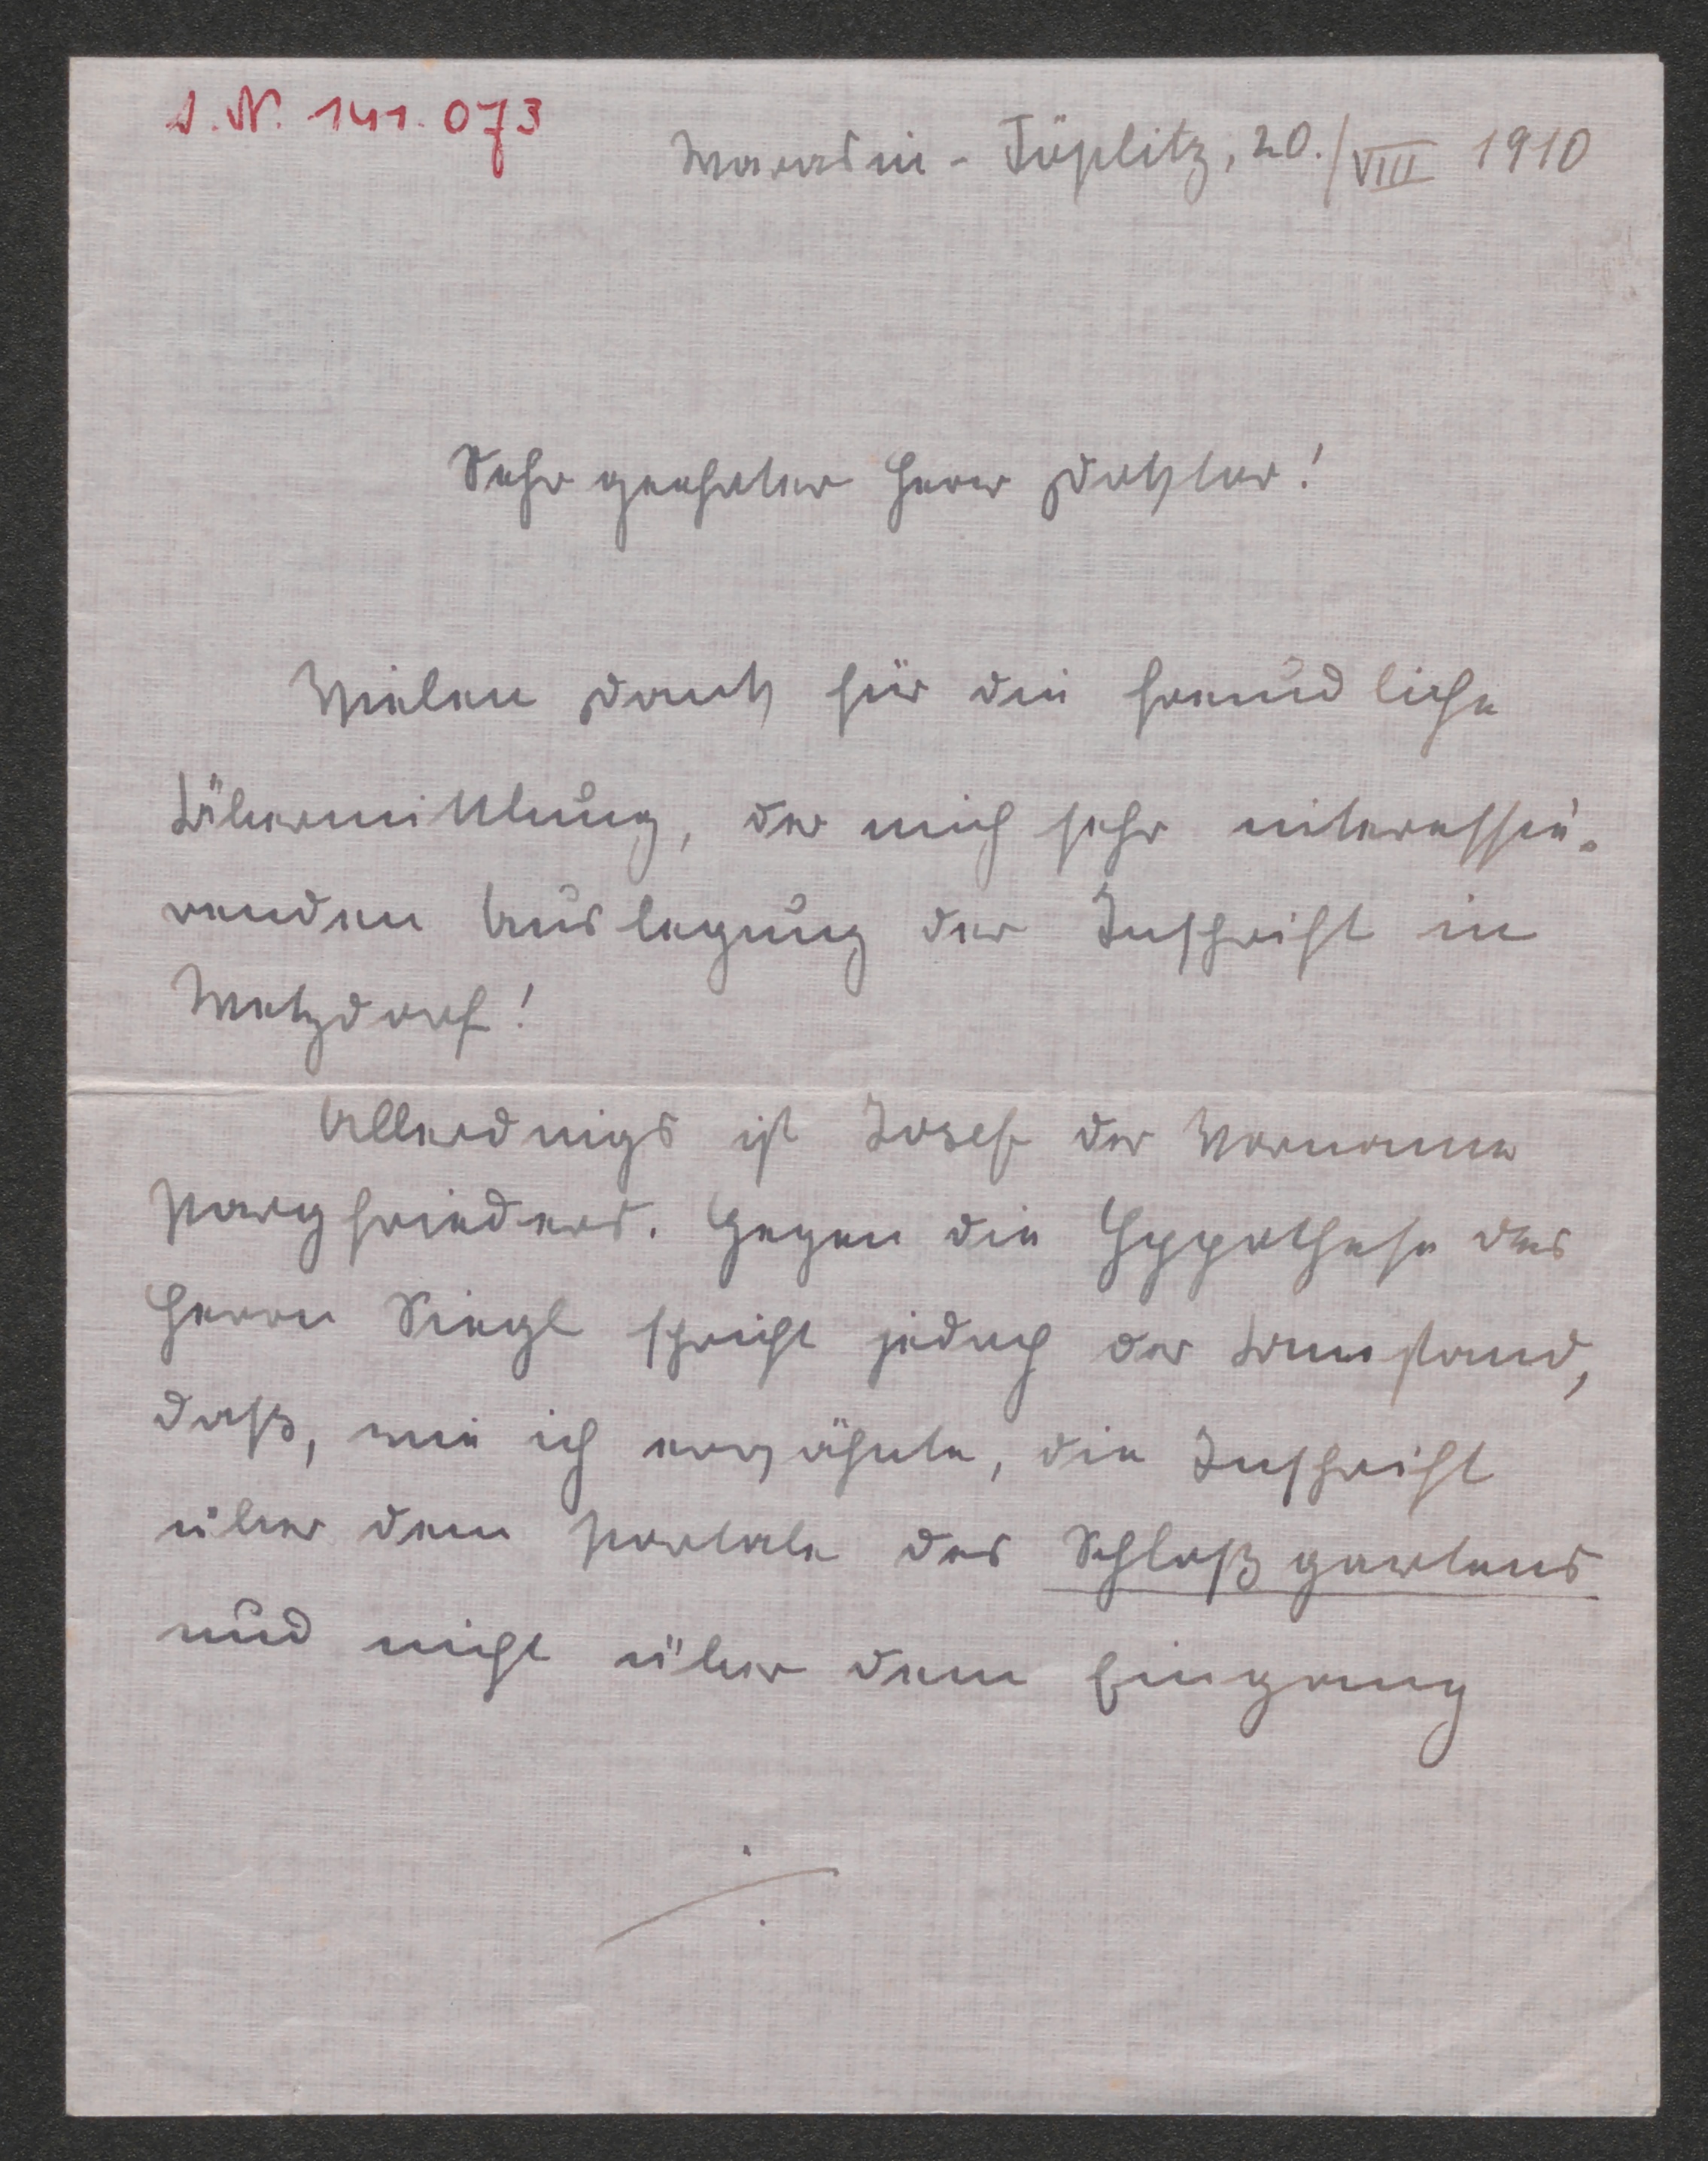 J. N. 141.073
Warasdin-Töplitz, 20./VIII 1910
Sehr geehrter Herr Doktor!
Vielen Dank für die freundliche
Übermittlung, der mich sehr interessie-
renden Auslegung der Inschrift in
Wetzdorf!
Allerdings ist Josef der Vorname
Pargfrieders. Gegen die Hypothese des
Herrn Siegl spricht jedoch der Umstand,
daß, wie ich erwähnte, die Inschrift
über dem Portale des Schloßgartens
und nicht über dem Eingang